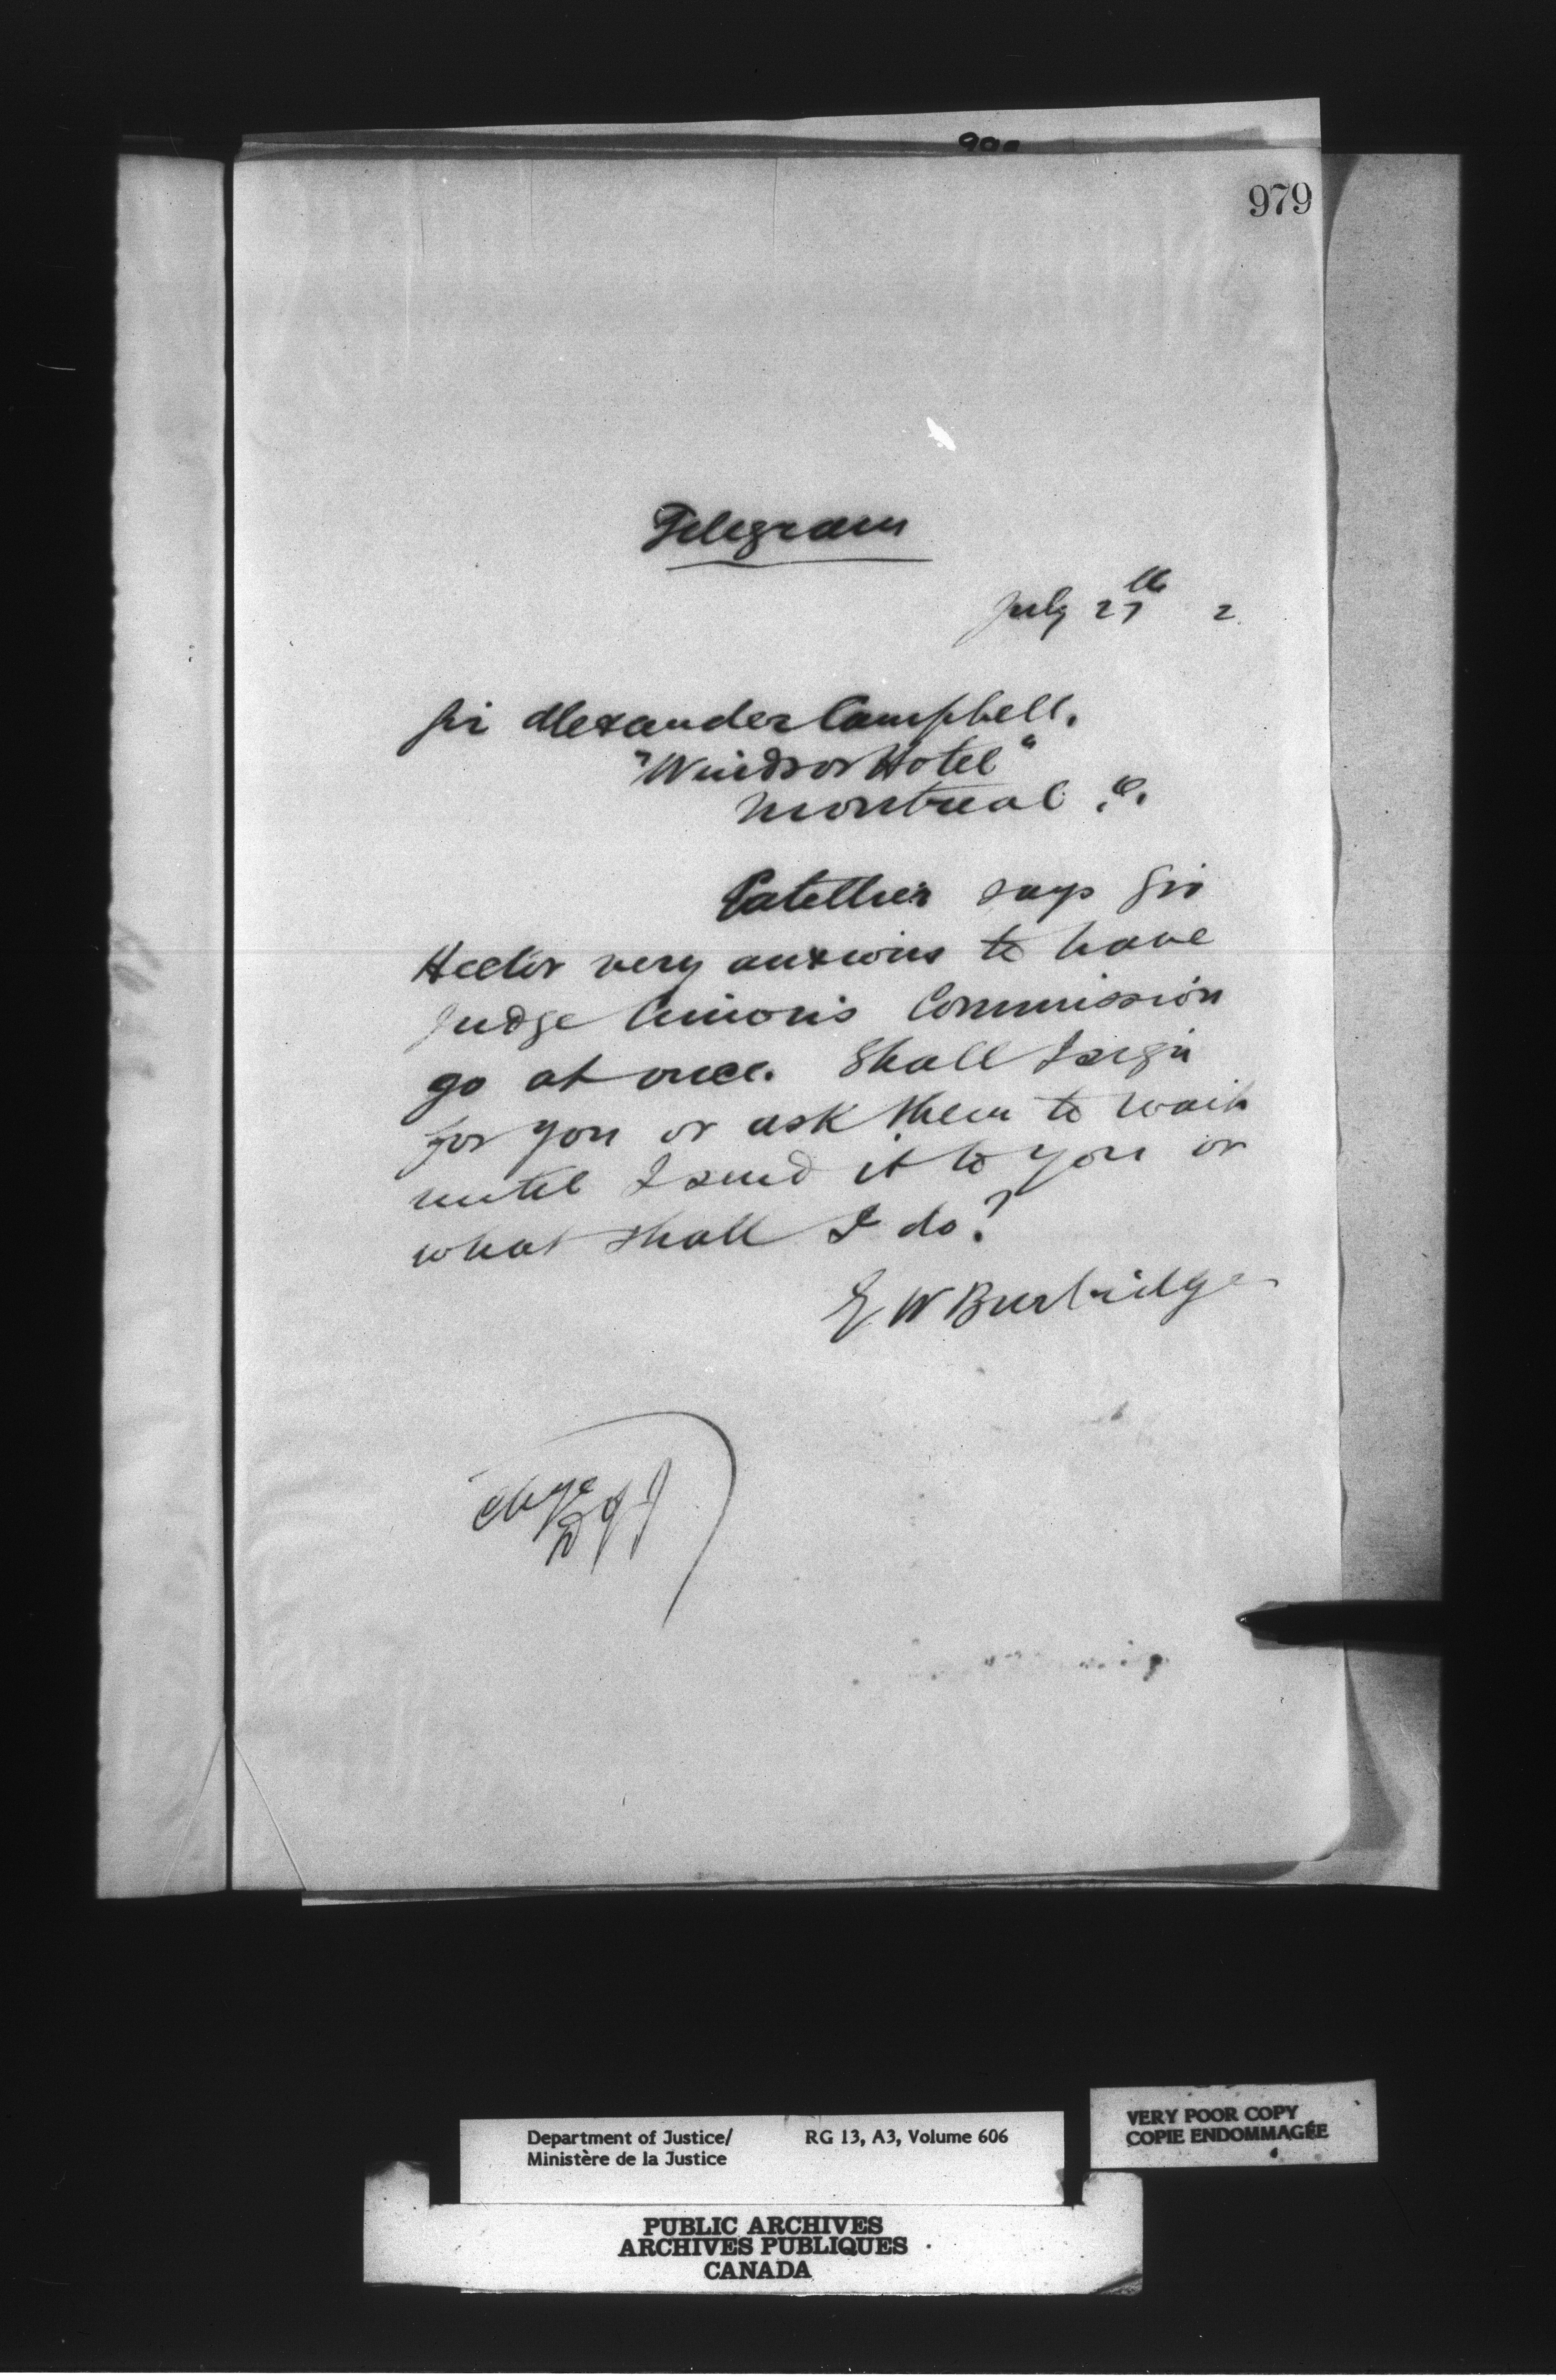 979
Telegram
July 27th 2
Sir Alexander Campbell.
"Windsor Hotel"
Montreal.
says Sir
Hector very anxious to have
Judge Cimon's Commission
go at once. Shall I sign
for you or ask them to wait
until I send it to you or
what shall I do?
W Burbidge
Department of Justice/ RG 13, A3, Volume 606
Ministère de la Justice
VERY POOR COPY
COPIE ENDOMMAGÉE
PUBLIC ARCHIVES
ARCHIVES PUBLIQUES
CANADA